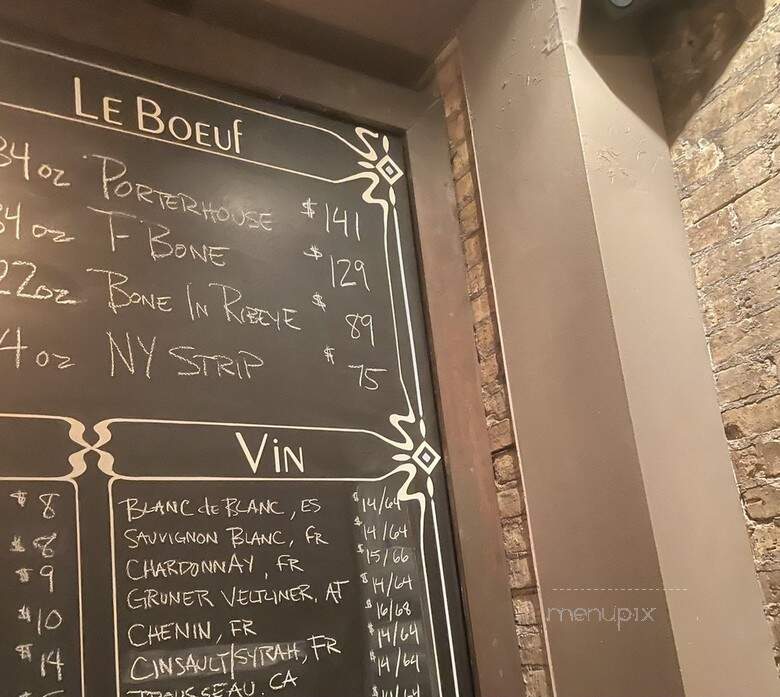 LE BOEUf
34oz PORTERHOUSE $141
34oz T-BONE $129
22oz BONE IN RIBEYE $89
4oz NY STRIP $75
$8
$8
$9
$10
$14
VIN
BLANC de BLANC, ES $14/64
SAUVIGNON BLANC, FR $14/64
CHARDONNAY, FR $15/66
GRUNER VELTLINER, AT $14/64
CHENIN, FR $16/68
CINSAULT/SYRAH, FR $14/64
TROUSSEAU, CA $14/64
menupix